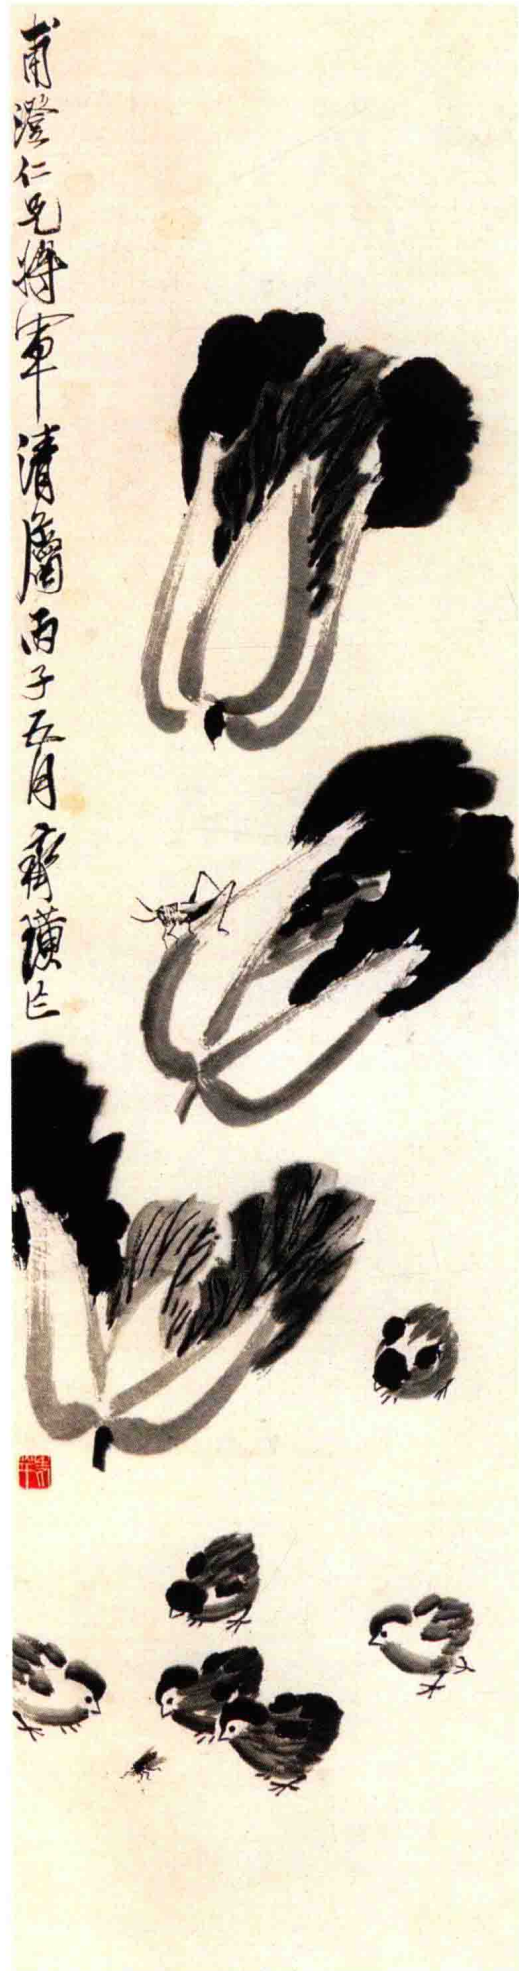 甫澄仁兄将軍清属丙子五月齊璜作